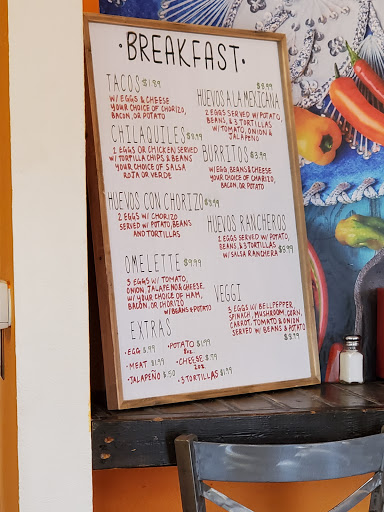 ·BREAKFAST·
TACOS $1.89
W/ EGGS & CHEESE
YOUR CHOICE OF CHORIZO,
BACON, OR POTATO
CHILAQUILES $8.99
2 EGGS OR CHICKEN SERVED
W/ TORTILLA CHIPS & BEANS
YOUR CHOICE OF SALSA
ROJA OR VERDE
HUEVOS CON CHORIZO $8.99
2 EGGS W/ CHORIZO
SERVED W/ POTATO, BEANS
AND TORTILLAS
OMELETTE $9.99
3 EGGS W/ TOMATO,
ONION, JALAPEÑO & CHEESE,
W/ YOUR CHOICE OF HAM,
BACON, OR CHORIZO
W/ BEANS & POTATO
EXTRAS
·EGG $.99
·MEAT $1.99
·JALAPEÑO $.50
·POTATO $1.99
8oz.
·CHEESE $.79
2oz
·3 TORTILLAS $1.99
$8.99
HUEVOS A LA MEXICANA
2 EGGS SERVED W/ POTATO,
BEANS, & 3 TORTILLAS
W/ TOMATO, ONION &
JALAPEÑO
BURRITOS $3.99
W/ EGG, BEANS & CHEESE
YOUR CHOICE OF CHARIZO,
BACON, OR POTATO
HUEVOS RANCHEROS
2 EGGS SERVED W/ POTATO,
BEANS, & 3 TORTILLAS
W/ SALSA RANCHERA $8.99
VEGGI
3 EGGS W/ BELLPEPPER,
SPINACH, MUSHROOM, CORN,
CARROT, TOMATO & ONION
SERVED W/ BEANS & POTATO
$8.99